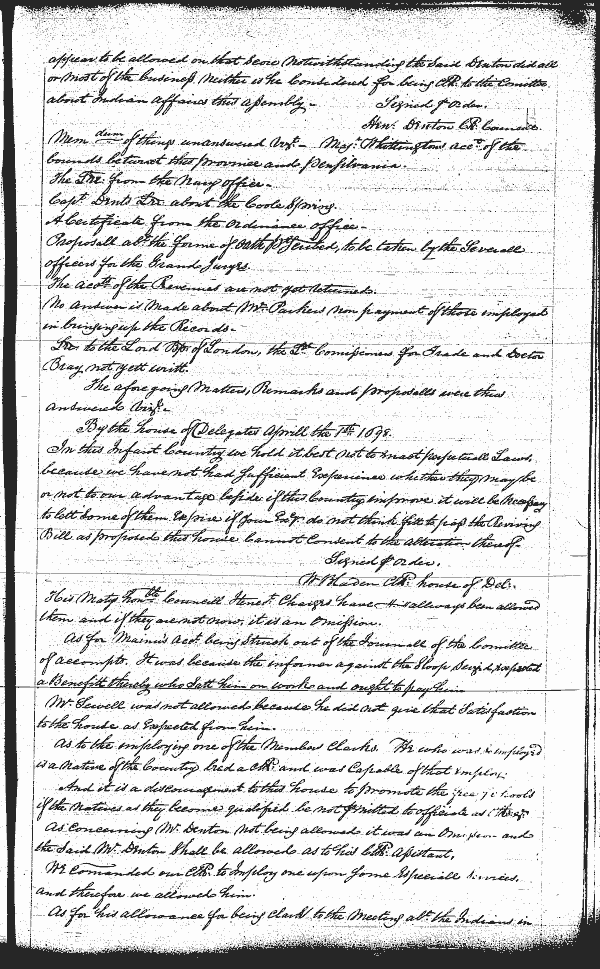 appear to be allowed on that Score Notwithstanding the Said Denton did all
or most of the business, Neither is he Considered for being Clk. to the Comittee
about Indian Affaires this Assembly.- Signed p Order.
Hen: Denton Cl. Councill.
Mem dum of things unanswered Vizt.- Majr. Whittingtons acct. of the
bounds betwixt this province and pensilvania.
The Lre. from the Navy office.-
Capt. Dents Lre about the Coole Spring.
A Certificate from the Ordinance office.-
Proposall abt. the forme of Oath p scribed, to be taken by the Severall
officers for the Grand Jurys.
The accots. of the Revenues are not yet returned.
No Answer is Made about Mr. Parkers non payment of those imployed
in bringing up the Records.-
Lre. to the Lord Bp. of London, the Lds. Comissioners for Trade and Doctor
Bray not yett writt.
The aforegoing Matters, Remarks and proposalls were thus
answered Vizt.-
By the house of Delegates Aprill the 1st. 1698.
In this Infant Country we hold it best not to enact perpetuall Laws,
because we have not had Sufficient Experience whether they may be
or not to our advantage beside if this Country improve it will be Necessary
to lett Some of them Expire if Your Exy. do not think fitt to pass the Reviving
Bill as proposed this house Cannot Consent to the alteration thereof.
Signed p Order.
W Bladen Clk. house of Del:
His Matys honble. Councill Itinert. Charges have allways been allowed
them and if they are not now, it is an Omission.
As for Mainus acct. being Struck out of the Journall of the Comittee
of accompts. It was because the informer against the Sloop Seized, expected
a Benefitt thereby who Sett him on work and ought to pay him
Mr. Sewell was not allowed because he did not give that Satisfaction
to the house as Expected from him.
As to the imploying one of the Members Clarks. He who was employed
is a Native of the Country bred a Clk. and was Capable of that employ.
And it is a discouragement to this house to promote the free Schools
if the Natives as they become qualified be not pmitted to officiate as others
As Concerning Mr. Denton not being allowed it was an Omission and
the Said Mr. Denton Shall be allowed as to his Clk. Assistant.
We Comanded our Clk. to Imploy one upon Some Especiall Services,
and therefore we allowed him.
As for his allowance for being Clark to the Meeting abt. the Indians in